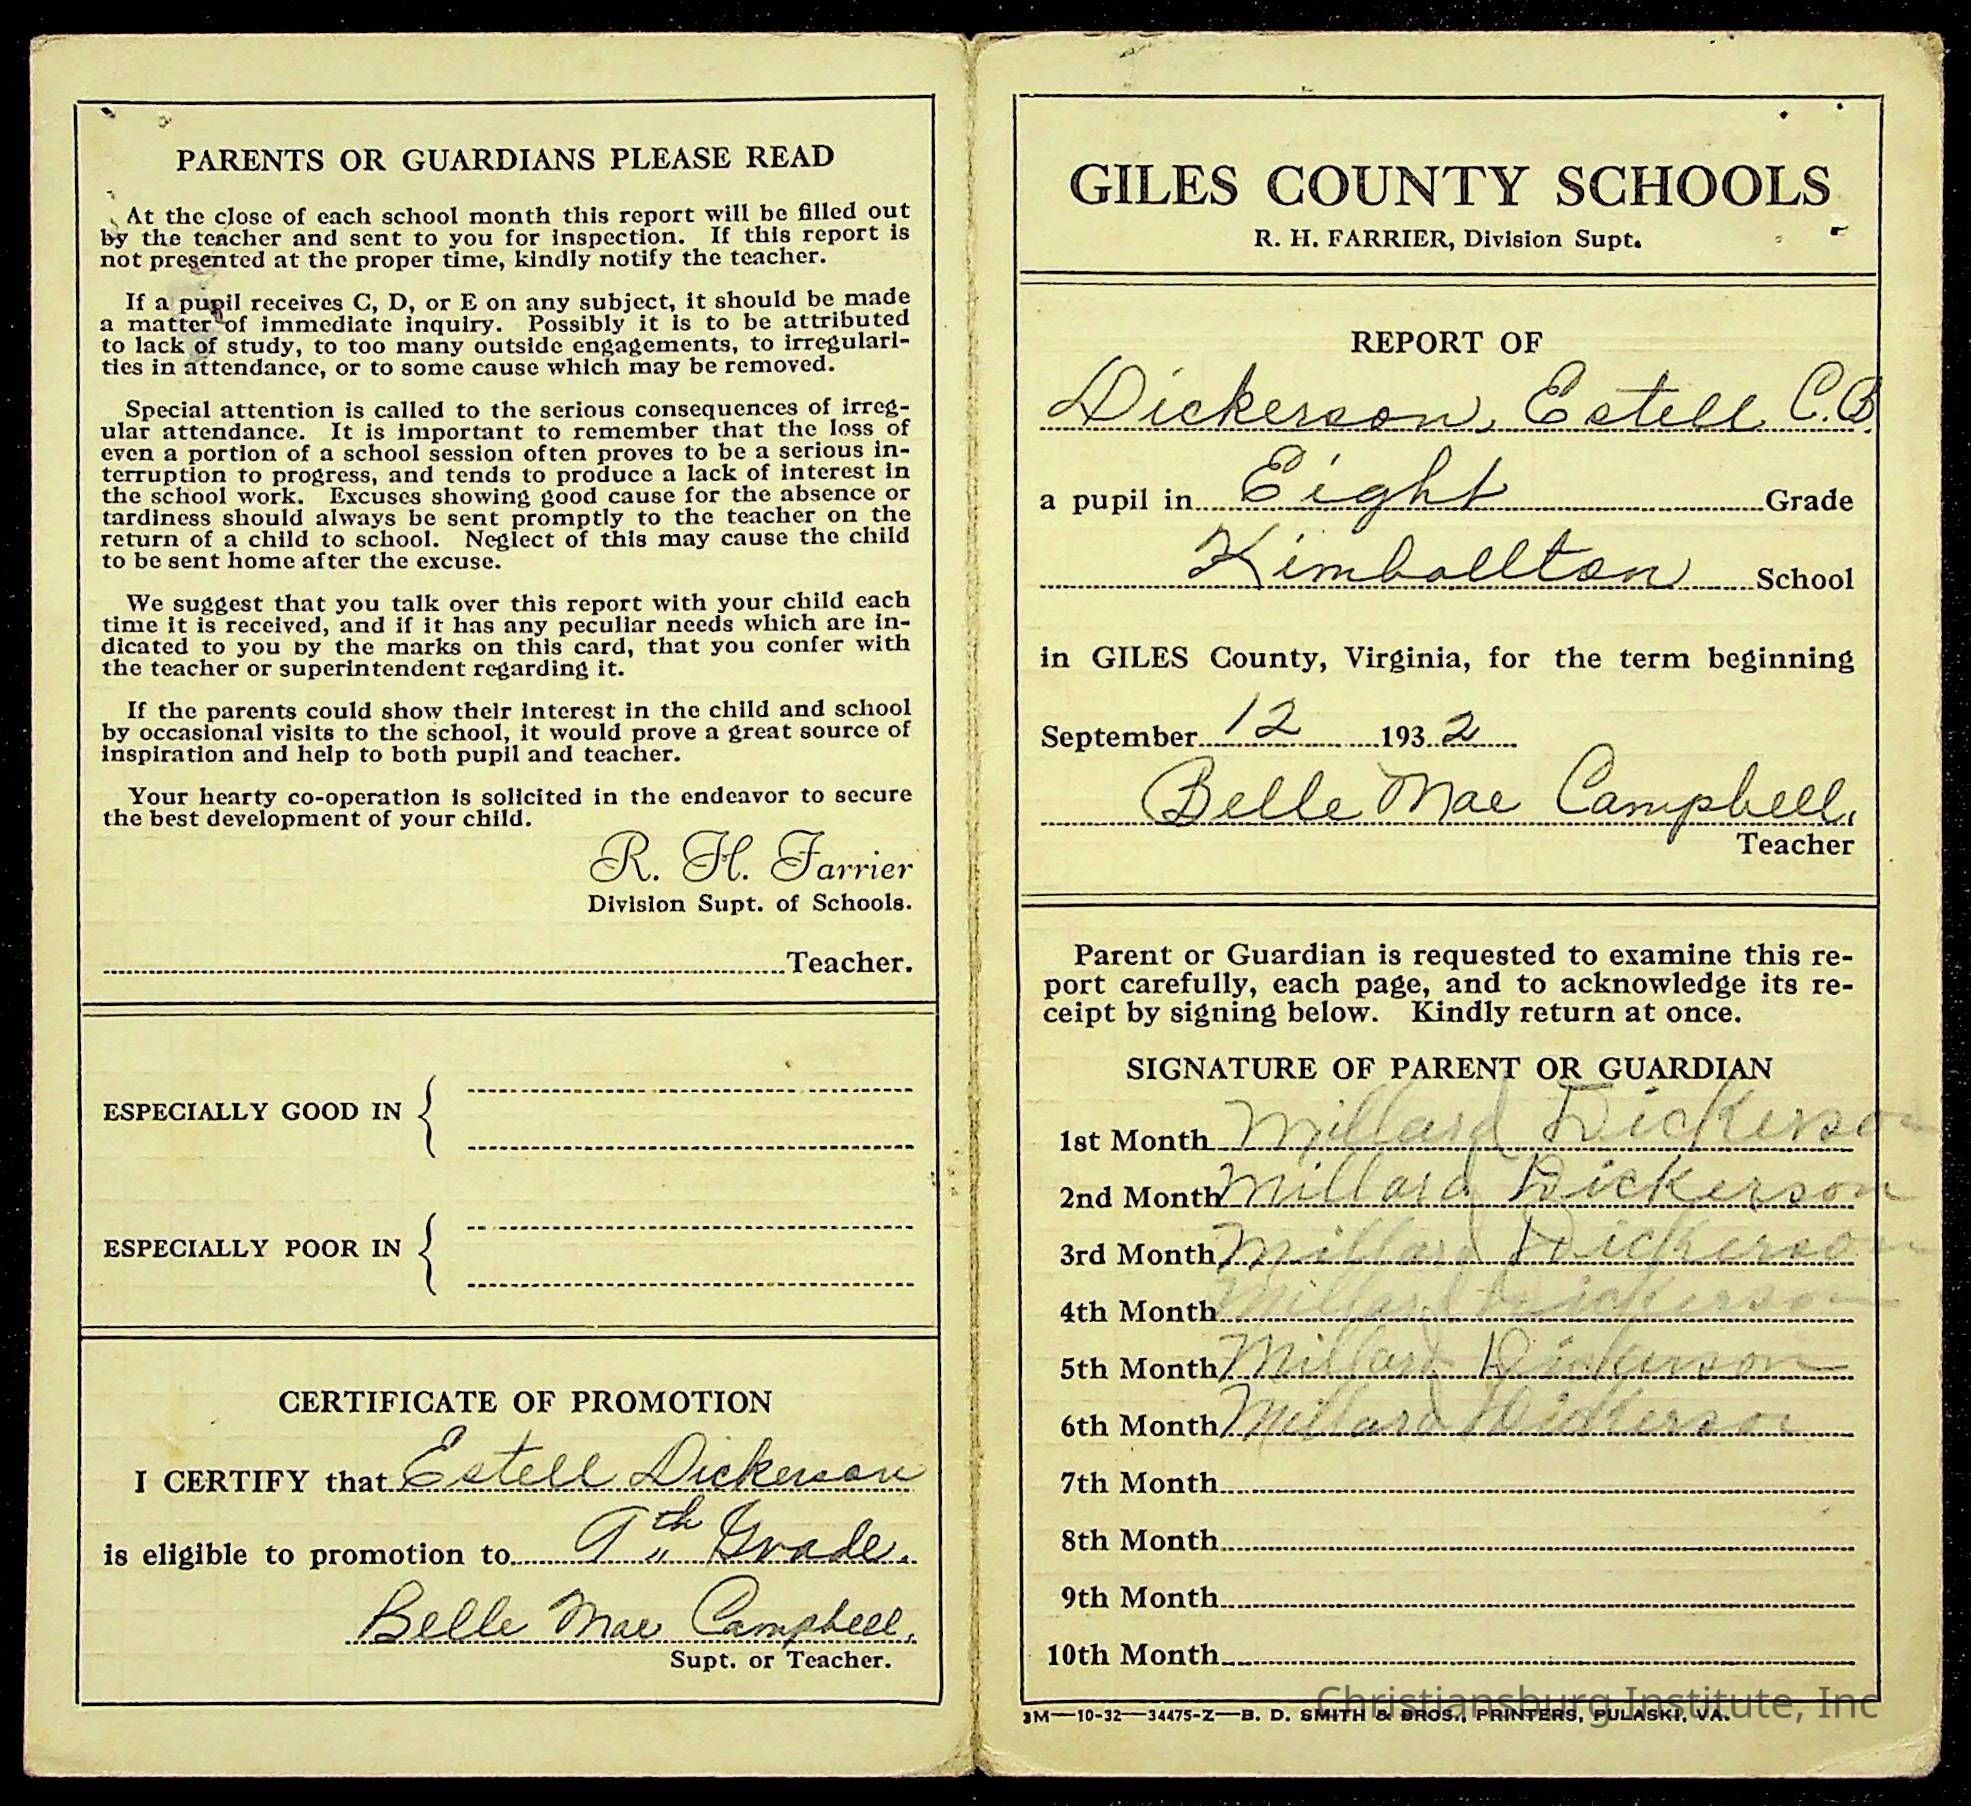 PARENTS OR GUARDIANS PLEASE READ
At the close of each school month this report will be filled out
by the teacher and sent to you for inspection. If this report is
not presented at the proper time, kindly notify the teacher.
If a pupil receives C, D, or E on any subject, it should be made
a matter of immediate inquiry. Possibly it is to be attributed
to lack of study, to too many outside engagements, to irregulari-
ties in attendance, or to some cause which may be removed.
Special attention is called to the serious consequences of irreg-
ular attendance. It is important to remember that the loss of
even a portion of a school session often proves to be a serious in-
terruption to progress, and tends to produce a lack of interest in
the school work. Excuses showing good cause for the absence or
tardiness should always be sent promptly to the teacher on the
return of a child to school. Neglect of this may cause the child
to be sent home after the excuse.
We suggest that you talk over this report with your child each
time it is received, and if it has any peculiar needs which are in-
dicated to you by the marks on this card, that you confer with
the teacher or superintendent regarding it.
If the parents could show their interest in the child and school
by occasional visits to the school, it would prove a great source of
inspiration and help to both pupil and teacher.
Your hearty co-operation is solicited in the endeavor to secure
the best development of your child.
R. H. Farrier
Division Supt. of Schools.
Teacher.
ESPECIALLY GOOD IN
ESPECIALLY POOR IN
CERTIFICATE OF PROMOTION
I CERTIFY that Estell Dickerson
is eligible to promotion to 9th Grade.
Belle Mae Campbell.
Supt. or Teacher.
GILES COUNTY SCHOOLS
R. H. FARRIER, Division Supt.
REPORT OF
Dickerson, Estell C.B.
a pupil in Eight Grade
Kimballton School
in GILES County, Virginia, for the term beginning
September 12 1932
Belle Mae Campbell.
Teacher
Parent or Guardian is requested to examine this re-
port carefully, each page, and to acknowledge its re-
ceipt by signing below. Kindly return at once.
SIGNATURE OF PARENT OR GUARDIAN
1st Month Millard Dickerson
2nd Month Millard Dickerson
3rd Month Millard Dickerson
4th Month Millard Dickerson
5th Month Millard Dickerson
6th Month Millard Dickerson
7th Month
8th Month
9th Month
10th Month
Christiansburg Institute, Inc
3M—10-32—34475-Z—B. D. SMITH & BROS., PRINTERS, PULASKI, VA.